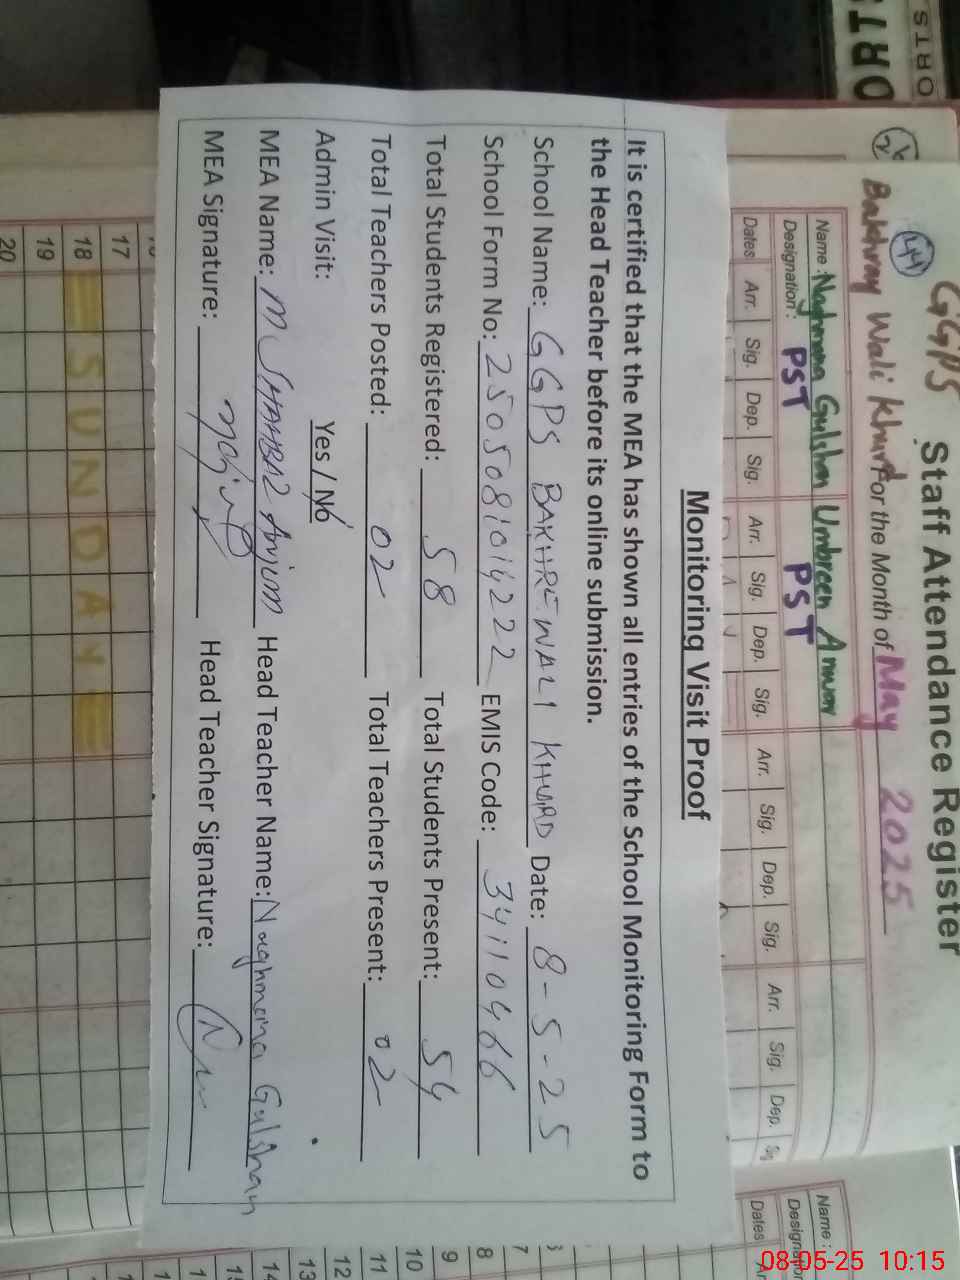 ORTS
GGPS Staff Attendance Register
44
Bakhray Wali Khurd For the Month of May 2025
Name: Naghmana Gulshan Umbreen Anwar
Designation: PST PST
Dates Arr. Sig. Dep. Sig. Arr. Sig. Dep. Sig. Arr. Sig. Dep. Sig. Arr. Sig. Dep.
Monitoring Visit Proof
It is certified that the MEA has shown all entries of the School Monitoring Form to
the Head Teacher before its online submission.
School Name: GGPS BAKHREWALI KHURD Date: 8-5-25
School Form No: 2505081014222 EMIS Code: 34110466
Total Students Registered: 58 Total Students Present: 54
Total Teachers Posted: 02 Total Teachers Present: 02
Admin Visit: Yes / No
MEA Name: M SHAHBAZ Anjum Head Teacher Name: Naghmana Gulshan
MEA Signature: Head Teacher Signature:
17
18 SUNDAY
19
20
Name:
Designation
Dates
7
8
9
10
11
12
13
08-05-25 10:15